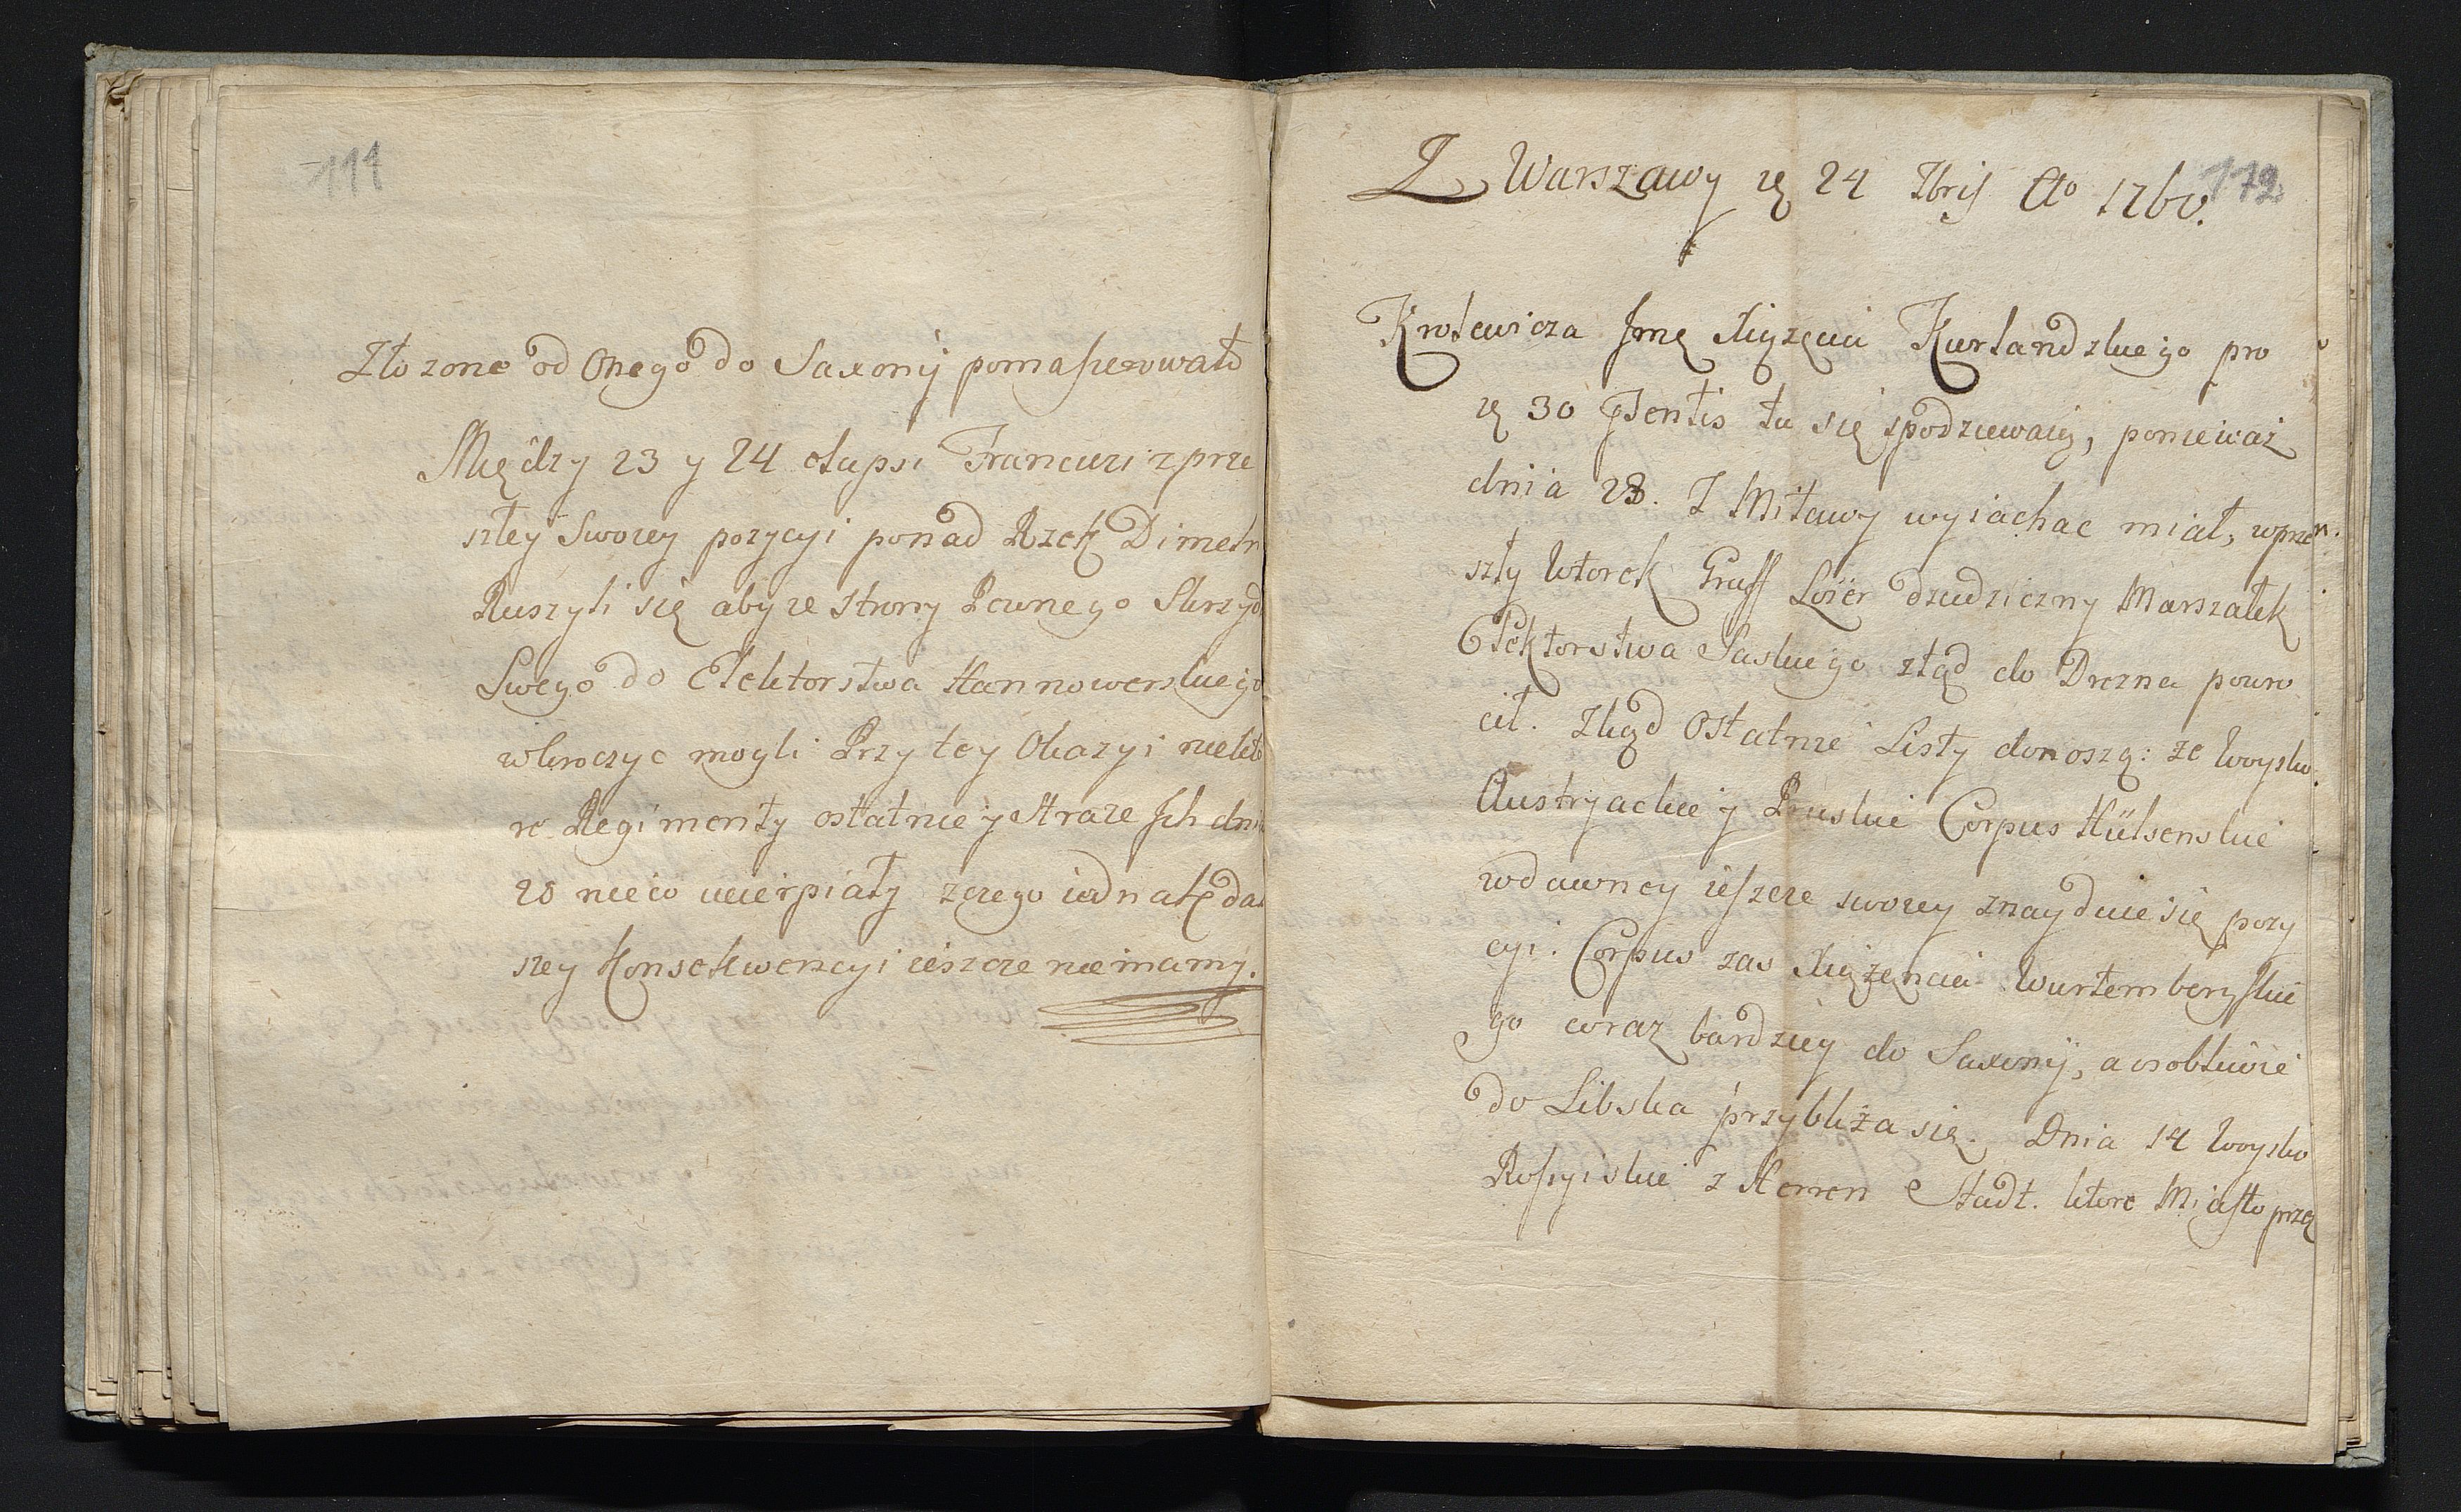 111
Złozone od Onego do Saxonij pomaszerowało
Między 23 y 24 Aupsi Francuzi z prze
szłey Swoiey pozycyi ponad Rzek Dimeln
Ruszyli się aby ze strony Pewnego Skrzyd
Swego do Elektorstwa Hannowerskiego
wkroczyc mogli Przy tey Okazyi niekto
re Regimenty ostatniey Straze Jch dnia
20 nieco ucierpiały z czego iednak dal
szey Konsekwencyi ieszcze nie mamy.
172
Z Warszawy 24 7bris Ao 1760.
Krolewicza Jmę Xiązęcia Kurlandzkiego pro
30 Psentis tu się spodziewaią, poniewaz
dnia 23. Z Mitawy wyiachac miał, w prze
szły Wtorek Graff Löser dziedziczny Marszałek
Elektorstwa Saskiego ztąd do Drezna powro
cił. Zkąd Ostatnie Listy donoszą: ze Woysko
Austryackie y Pruskie Corpus Hülsenskie
w dawney ieszcze swoiey znayduie się pozy
cyi. Corpus zas Xiązęncia Wurtemberskie
go coraz bardziey do Saxonij, a osobliwie
do Libska przybliża się. Dnia 14 Woysko
Rossyiskie z Herren Stadt. ktore Miasto przez